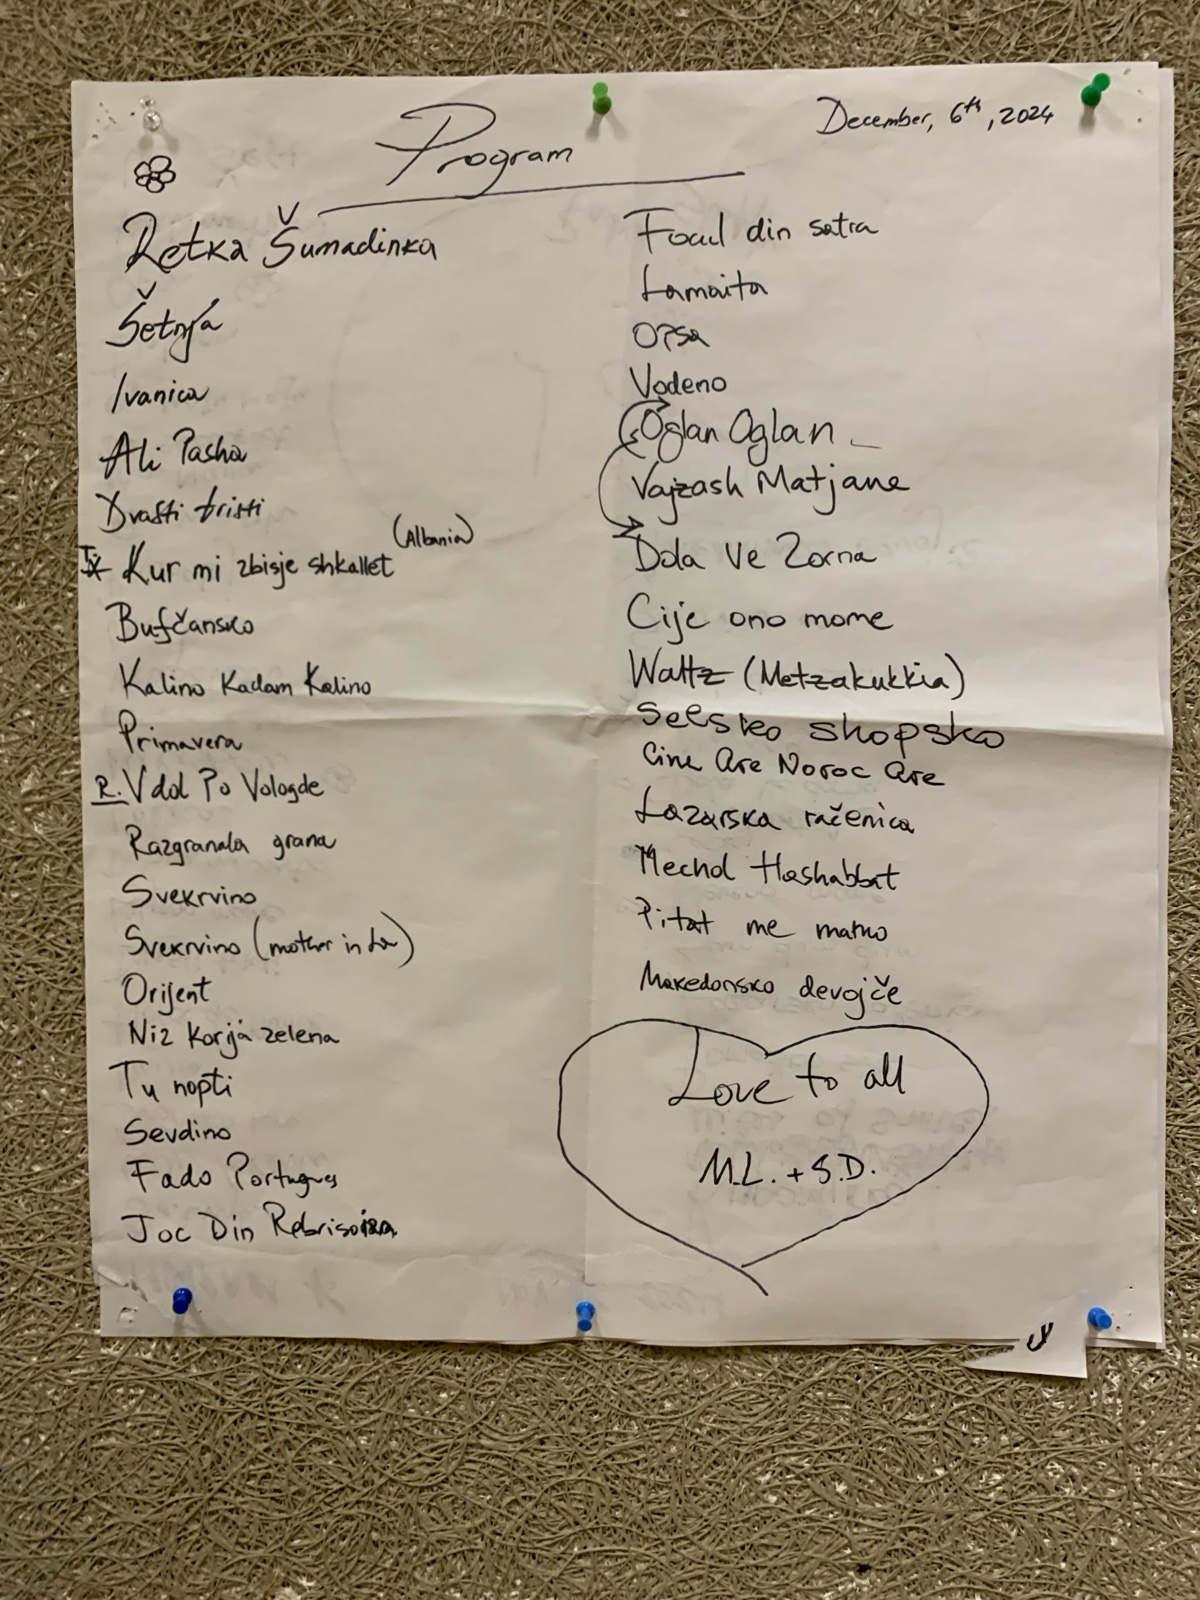 Program
December, 6th, 2024
Retka Šumadinka
Šetnja
Ivanica
Ali Pasha
Dvasti tristi
Kur mi zbisje shkallet (Albania)
Bufčansko
Kalino Kadam Kalino
Primavera
R. Vdol Po Vologde
Razgranala grana
Svekrvino
Svekrvino (mother in La)
Orijent
Niz Korija zelena
Tu nopti
Sevdino
Fado Portugues
Joc Din Rebrisoara
Focul din satra
Lamaita
Opsa
Vodeno
Oglan Oglan
Vajzash Matjane
Dola Ve Zorna
Cije ono mome
Waltz (Metzakukkia)
Selsko shopsko
Cine Are Noroc Are
Lazarska račenica
Mechol Hashabbat
Pitat me mamo
Makedonsko devojče
Love to all
M.L. + S.D.